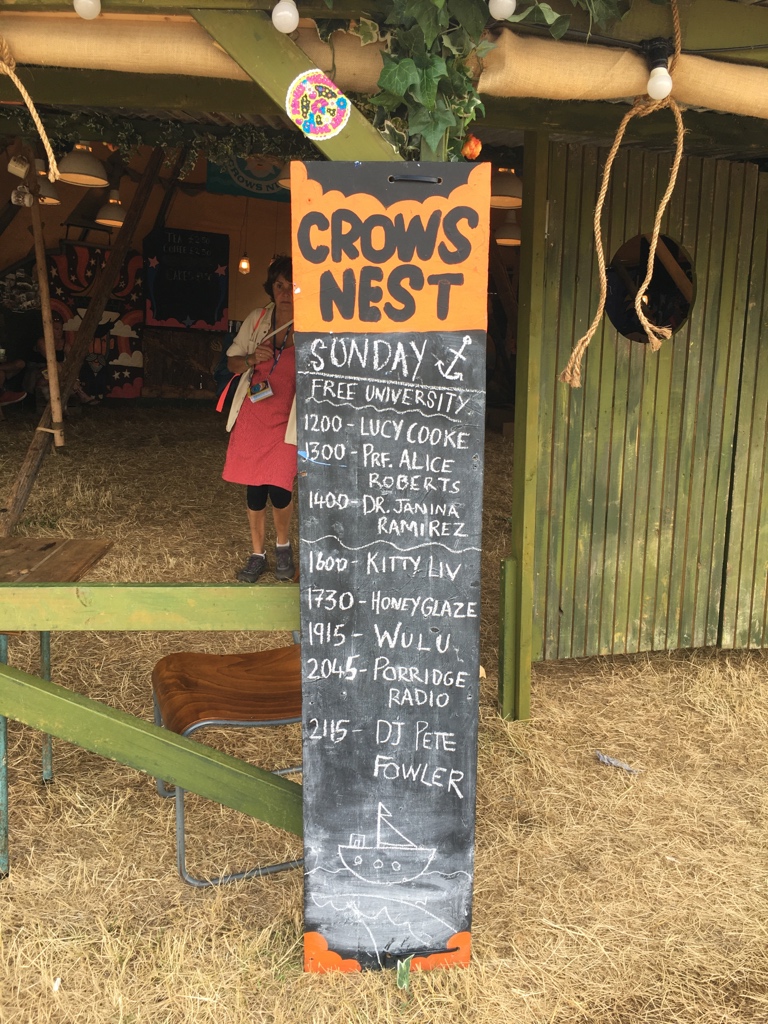 CROWS
NEST
SUNDAY
FREE UNIVERSITY
1200 - LUCY COOKE
1300 - PRF. ALICE
ROBERTS
1400 - DR. JANINA
RAMIREZ
1600 - KITTY LIV
1730 - HONEYGLAZE
1915 - WULU
2045 - PORRIDGE
RADIO
2115 - DJ PETE
FOWLER